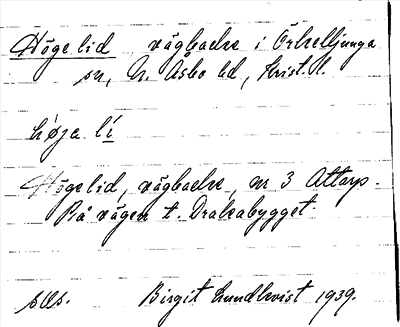 Högelid vägbacke i Örkelljunga
sn, N. Åsbo hd, Krist. l.
höja lí
Högelid, vägbacke, nr 3 Attarp.
På vägen t. Drakabygget.
Birgit Lundkvist 1939.